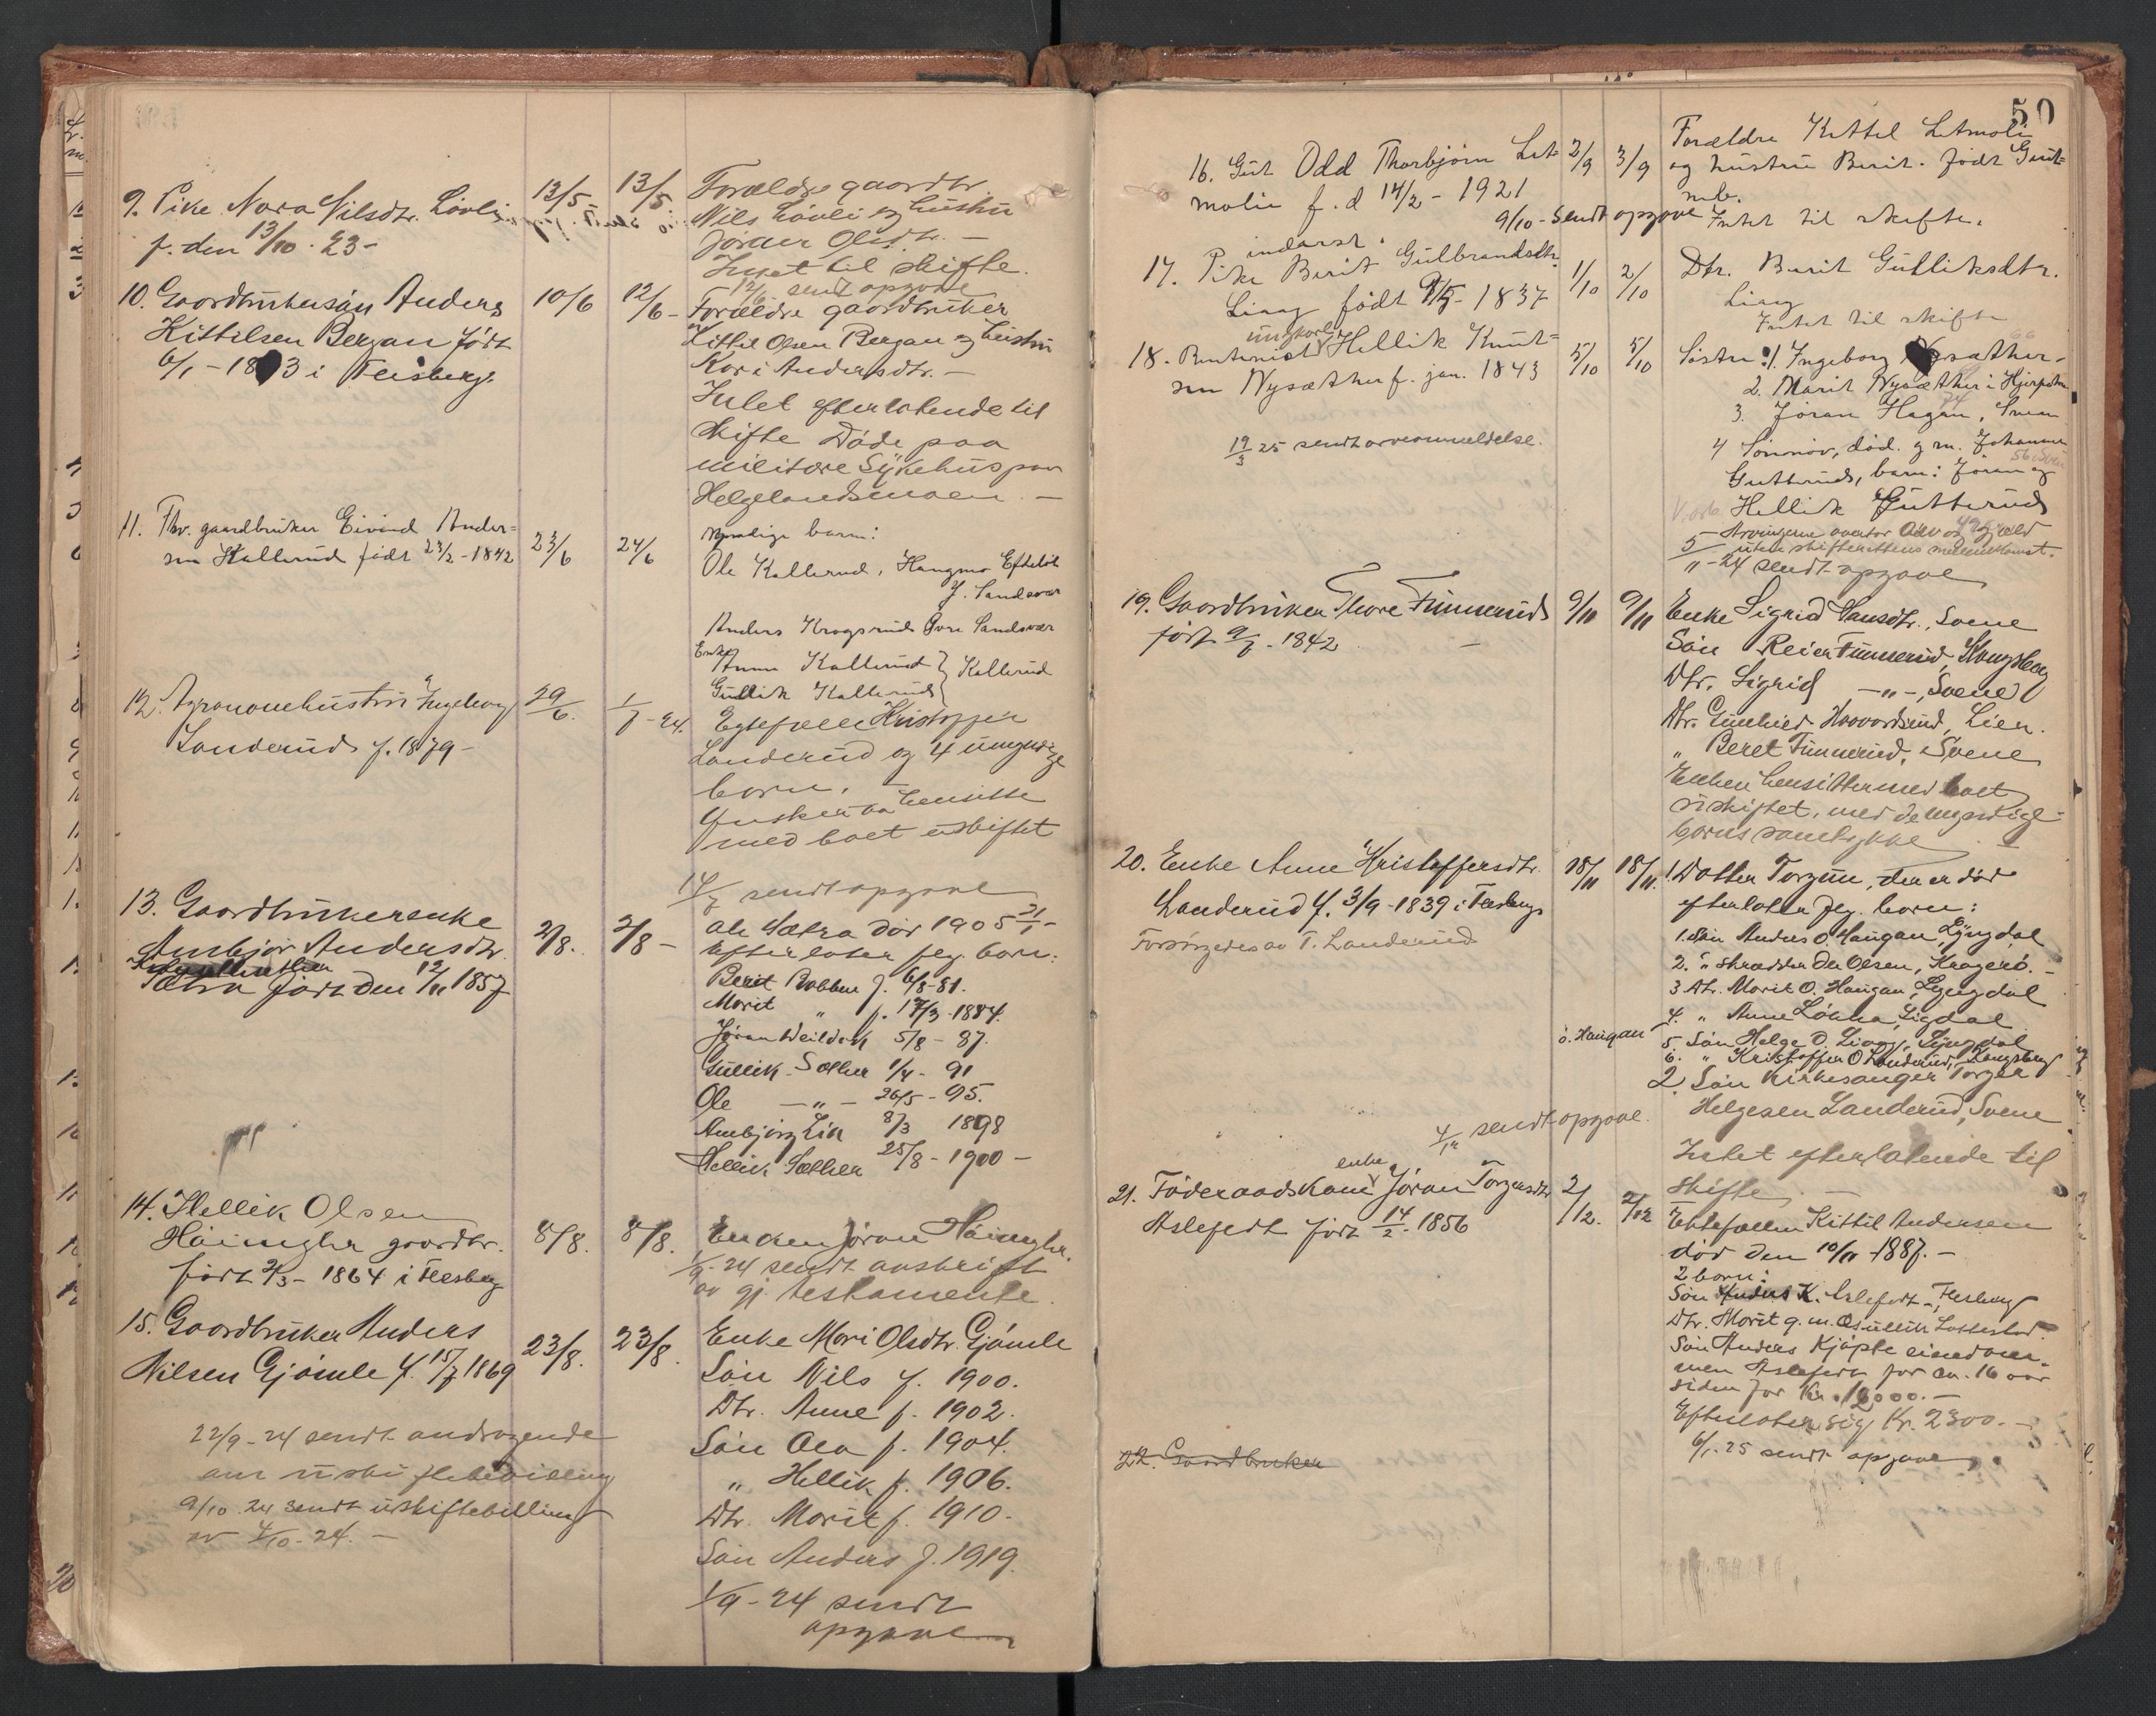 9. Pike Nora Nilsdtr. Løvli
f. den 13/10. 23-
13/5
13/5
Forældre gaardbr.
Nils Løvli og hustru
Jøran Olsdtr. —
Intet til skifte.
12/6 sendt opgave
10. Gaardbrukersøn Anders
Kittilsen Bergan født
6/1 - 1803 i Flesberg.
10/6
12/6 -
Forældre gaardbruker
Kittil Olsen Bergan og hustru
Kari Andersdtr. —
Intet efterlatende til
skifte Døde paa
militære Sykehus paa
Helgelandsmoen. —
11. Fhv. gaardbruker Eivind Anders=
sen Kallerud født 23/2 - 1842
23/6
24/6
Myndige barn:
Ole Kallerud, Hangmo Efteløt
Y. Sandsvær
Anders Krogsrud Øvre Sandsvær
Enke Anne Kallerud } Kallerud
Gullik Kallerud
12. Agronomhustru Ingeborg
Landerud f. 1879 -
29/6.
1/7 - 24.
Egtefælle Kristoffer
Landerud og 4 umyndige
born. —
Ønsker aa hensitte
med boet uskiftet
14/7 sendt opgave
13. Gaardbrukerenke
Ambjør Andersdtr.
Sætra født den 12/11 1857
2/8.
2/8 -
Ole Sætra død 1905 21/1 -
Efterlater flg. born:
Berit Robben f. 6/8 - 81.
Marit " f. 17/3 - 1884.
Jøran 5/8 - 87.
Gullik Sæther 1/4 - 91
Ole — " — 26/5 - 95.
Ambjørg Lia 8/3 1898
Hellik Sæther 25/8 - 1900 -
14. Hellik Olsen
gaardbr.
født 2/3 - 1864 i Flesberg
8/8.
8/8.
Enken Jøran
1/9 - 24 sendt avskrift
av gj. testamente.
15. Gaardbruker Anders
Nilsen Gjømle f. 15/7 1869
23/8.
23/8.
Enke Mari Olsdtr. Gjømle
Søn Nils f. 1900.
Dtr. Anne f. 1902.
Søn Ola f. 1904.
" Hellik f. 1906.
Dtr. Marit f. 1910.
Søn Anders f. 1919.
1/9 - 24 sendt
opgave
22/9 - 24 sendt andragende
om uskiftebevilling
9/10. 24 sendt uskiftebevilling
av 4/10 - 24. —
50
16. Gut Odd Thorbjørn Let=
molie f. d 14/2 - 1921
2/9
3/9
Forældre Kittil Letmolie
og hustru Berit. født Gunt=
mb.
9/10 - sendt opgave
Intet til skifte.
17. Pike Berit Gulbrandsdtr.
Liaag født 9/5 - 1837
1/10
2/10
Dtr. Berit Gulliksdtr.
Liaag
Intet til skifte
18. Rentenist ungkarl Hellik Knut=
sen Nysæther f. jan. 1843
5/10
5/10
Søstre: 1. Ingeborg Nysæther -
2. Marit Nysæther i Hjerpdalen
3. Jøran Hagan, Svene
4 Sønnøv, død. g. m. Johannes
Gutterud, barn: Jøran og
Hellik Gutterud
19/3 25 sendt arveanmeldelse.
Arvingene overtar arv og gjæld
uten skifterettens mellemkomst.
5/11 - 24 sendt opgave
19. Gaardbruker Thore Finnerud
født 9/7 - 1842 —
9/11
9/11
Enke Sigrid Hansdtr., Svene
Søn Reier Finnerud, Kongsberg
Dtr. Sigrid — " —, Svene
Dtr. Gunhild Haavardsrud, Lien.
" Beret Finnerud, Svene
Enken hensitter med boet
uskiftet, med de myndige
borns samtykke.
20. Enke Anne Kristoffersdtr.
Landerud f. 3/9 - 1839 i Flesberg
Forsørgedes av T. Landerud
18/11
18/11.
1. Datter Torgun, der er død
efterlater flg. born:
1. Søn Anders O. Haugan, Lyngdal
2. " Skrædder Ole Olsen, Kragerø. —
3 Dtr. Marit O. Haugan, Lyngdal
4. " Anne Løkka, Sigdal
O. Haugan
5. Søn Helge O. Liaag, Lyngdal
6. " Kristoffer O Landerud, Kongsberg
2 Søn Kirkesanger Torger
Helgesen Landerud, Svene
4/12 sendt opgave.
Intet efterlatende til
skifte. —
21. Føderaadskone enke Jøran Torgersdtr
Aslefedt født 14/2. 1856
2/12.
2/12
Ektefællen Kittil Andersen
død den 10/11 - 1887. —
2 born:
Søn Anders K. Aslefedt -, Flesberg
Dtr. Marit g. m. Gullik
Søn Anders kjøpte eiendom-
men Aslefedt for ca. 16 aar
siden for kr. 12000. —
Efterlater sig Kr. 2300. —
6/1. 25 sendt opgave.
22. Gaardbruker